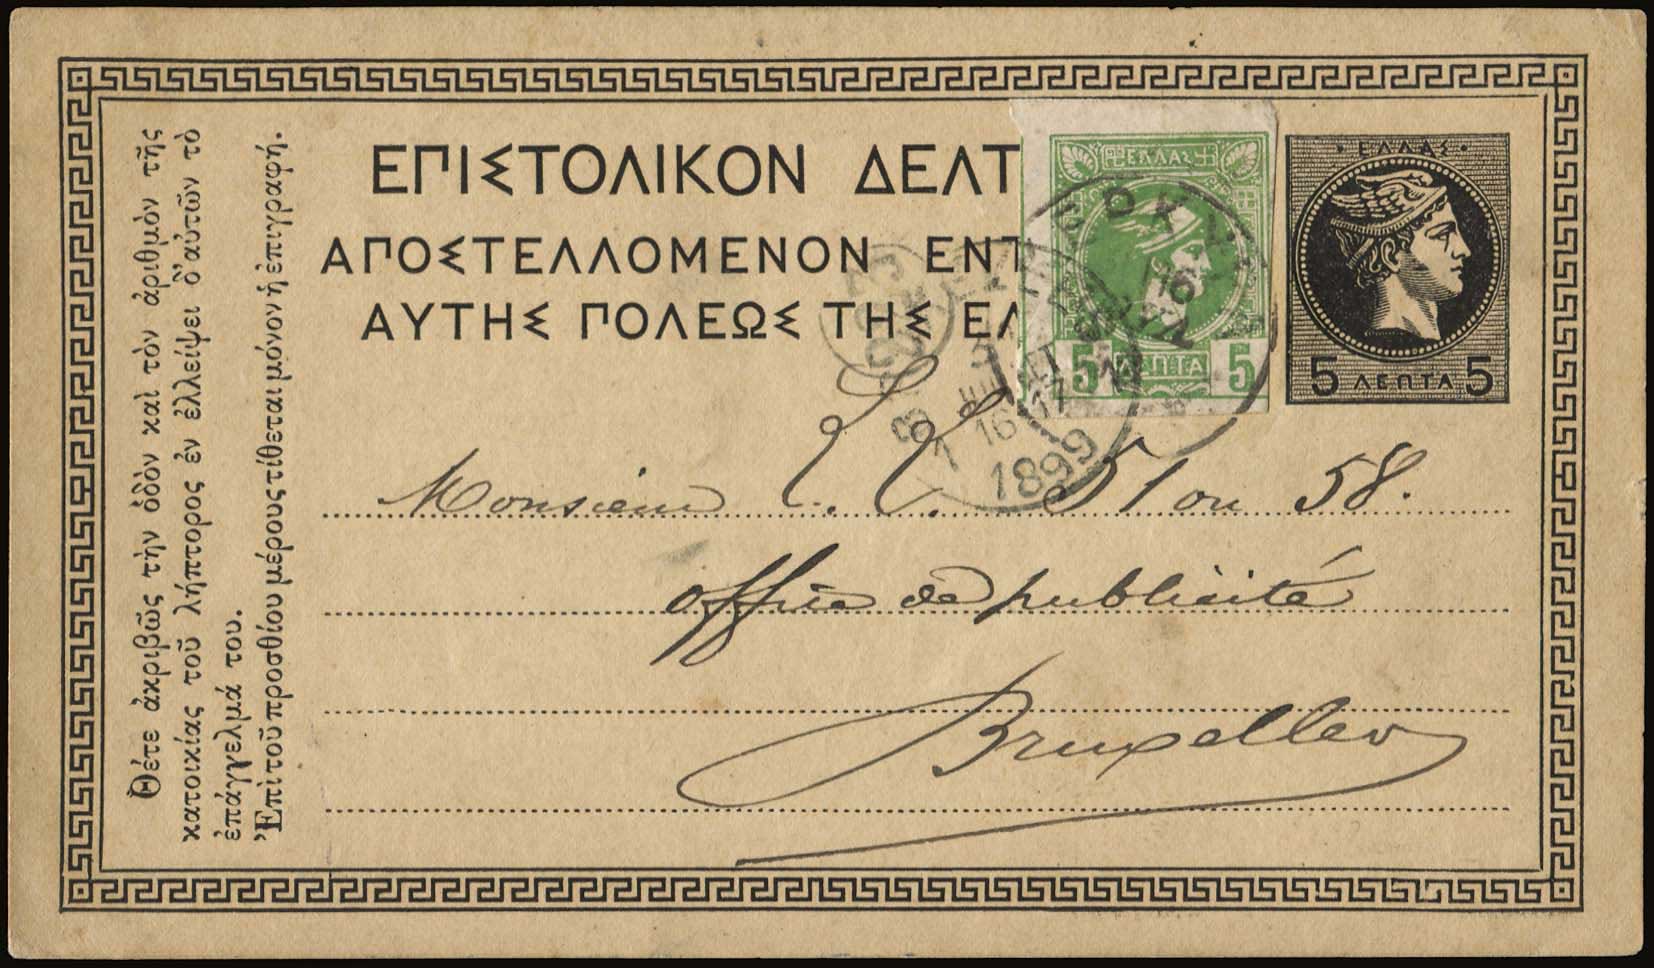 ΕΠΙΣΤΟΛΙΚΟΝ ΔΕΛΤ
ΑΠΟΣΤΕΛΛΟΜΕΝΟΝ ΕΝΤ
ΑΥΤΗΣ ΠΟΛΕΩΣ ΤΗΣ ΕΛ
Θέτε ἀκριβῶς τὴν ὁδὸν καὶ τὸν ἀριθμὸν τῆς
κατοικίας τοῦ λήπτορος ἐν ἐλλείψει δ'αὐτῶν τὸ
ἐπάγγελμά του.
Ἐπὶ τοῦ προσθίου μέρους τίθεται μόνον ἡ ἐπιγραφή.
ΕΛΛΑΣ
5 ΛΕΠΤΑ 5
ΕΛΛΑΣ
5 ΛΕΠΤΑ 5
16
1899
Monsieur 51 ou 58.
office de publicité
Bruxelles